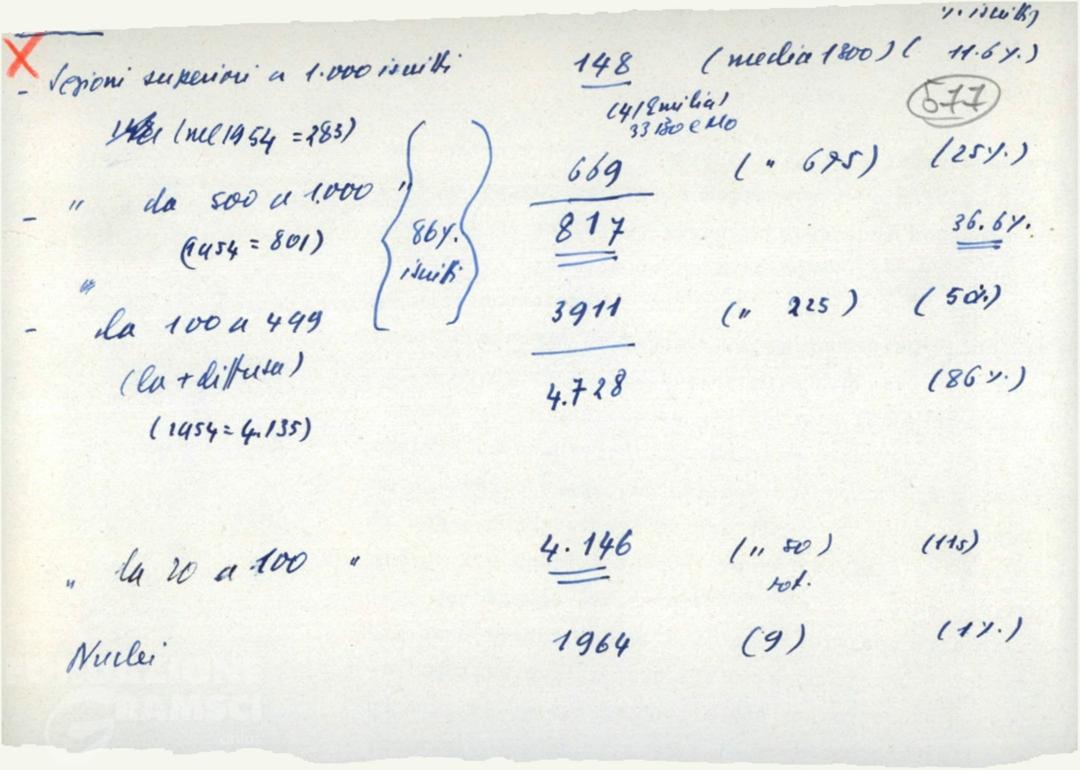 % iscritti
- Sezioni superiori a 1.000 iscritti 148 (media 1800) ( 11.6%)
(41 Emilia) 577
(nel 1954 = 283) 33 BO e MO
- " da 500 a 1.000 " 669 ( " 675) (25%)
(1954 = 801) 86% 817 36.6%
iscritti
" - da 100 a 499 3911 ( " 225 ) ( 50%)
(la + diffusa) 4.728 (86%)
(1954 = 4.135)
" da 20 a 100 " 4.146 ( " 50 )
Nuclei 1964 (9) (1%)
GRAMSCI